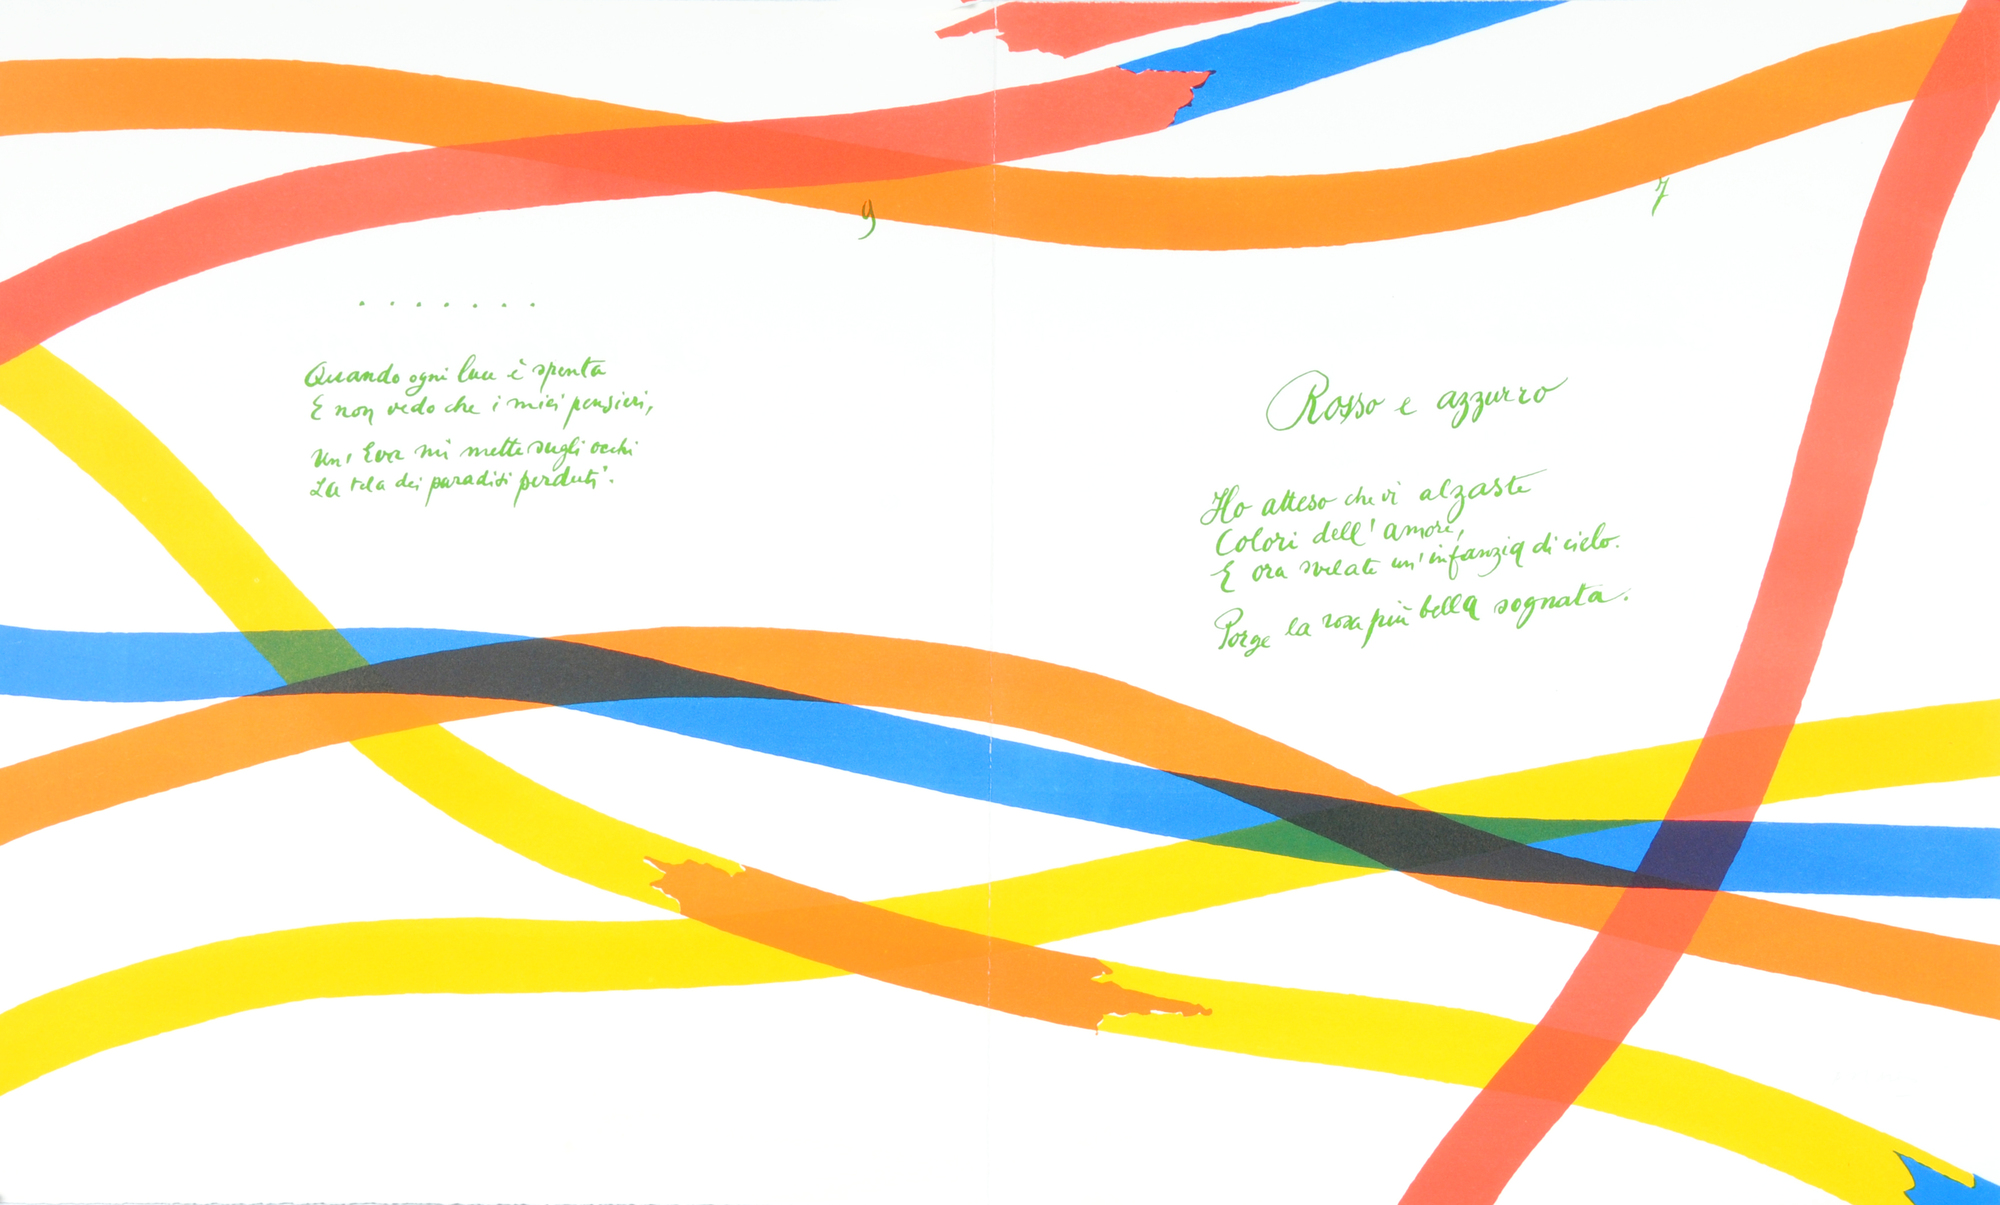 9
. . . . . . .
Quando ogni luce è spenta
E non vedo che i miei pensieri,
Un' Eva mi mette sugli occhi
La tela dei paradisi perduti.
7
Rosso e azzurro
Ho atteso che vi alzaste
Colori dell' amore,
E ora svelate un' infanzia di cielo.
Porge la rosa più bella sognata.